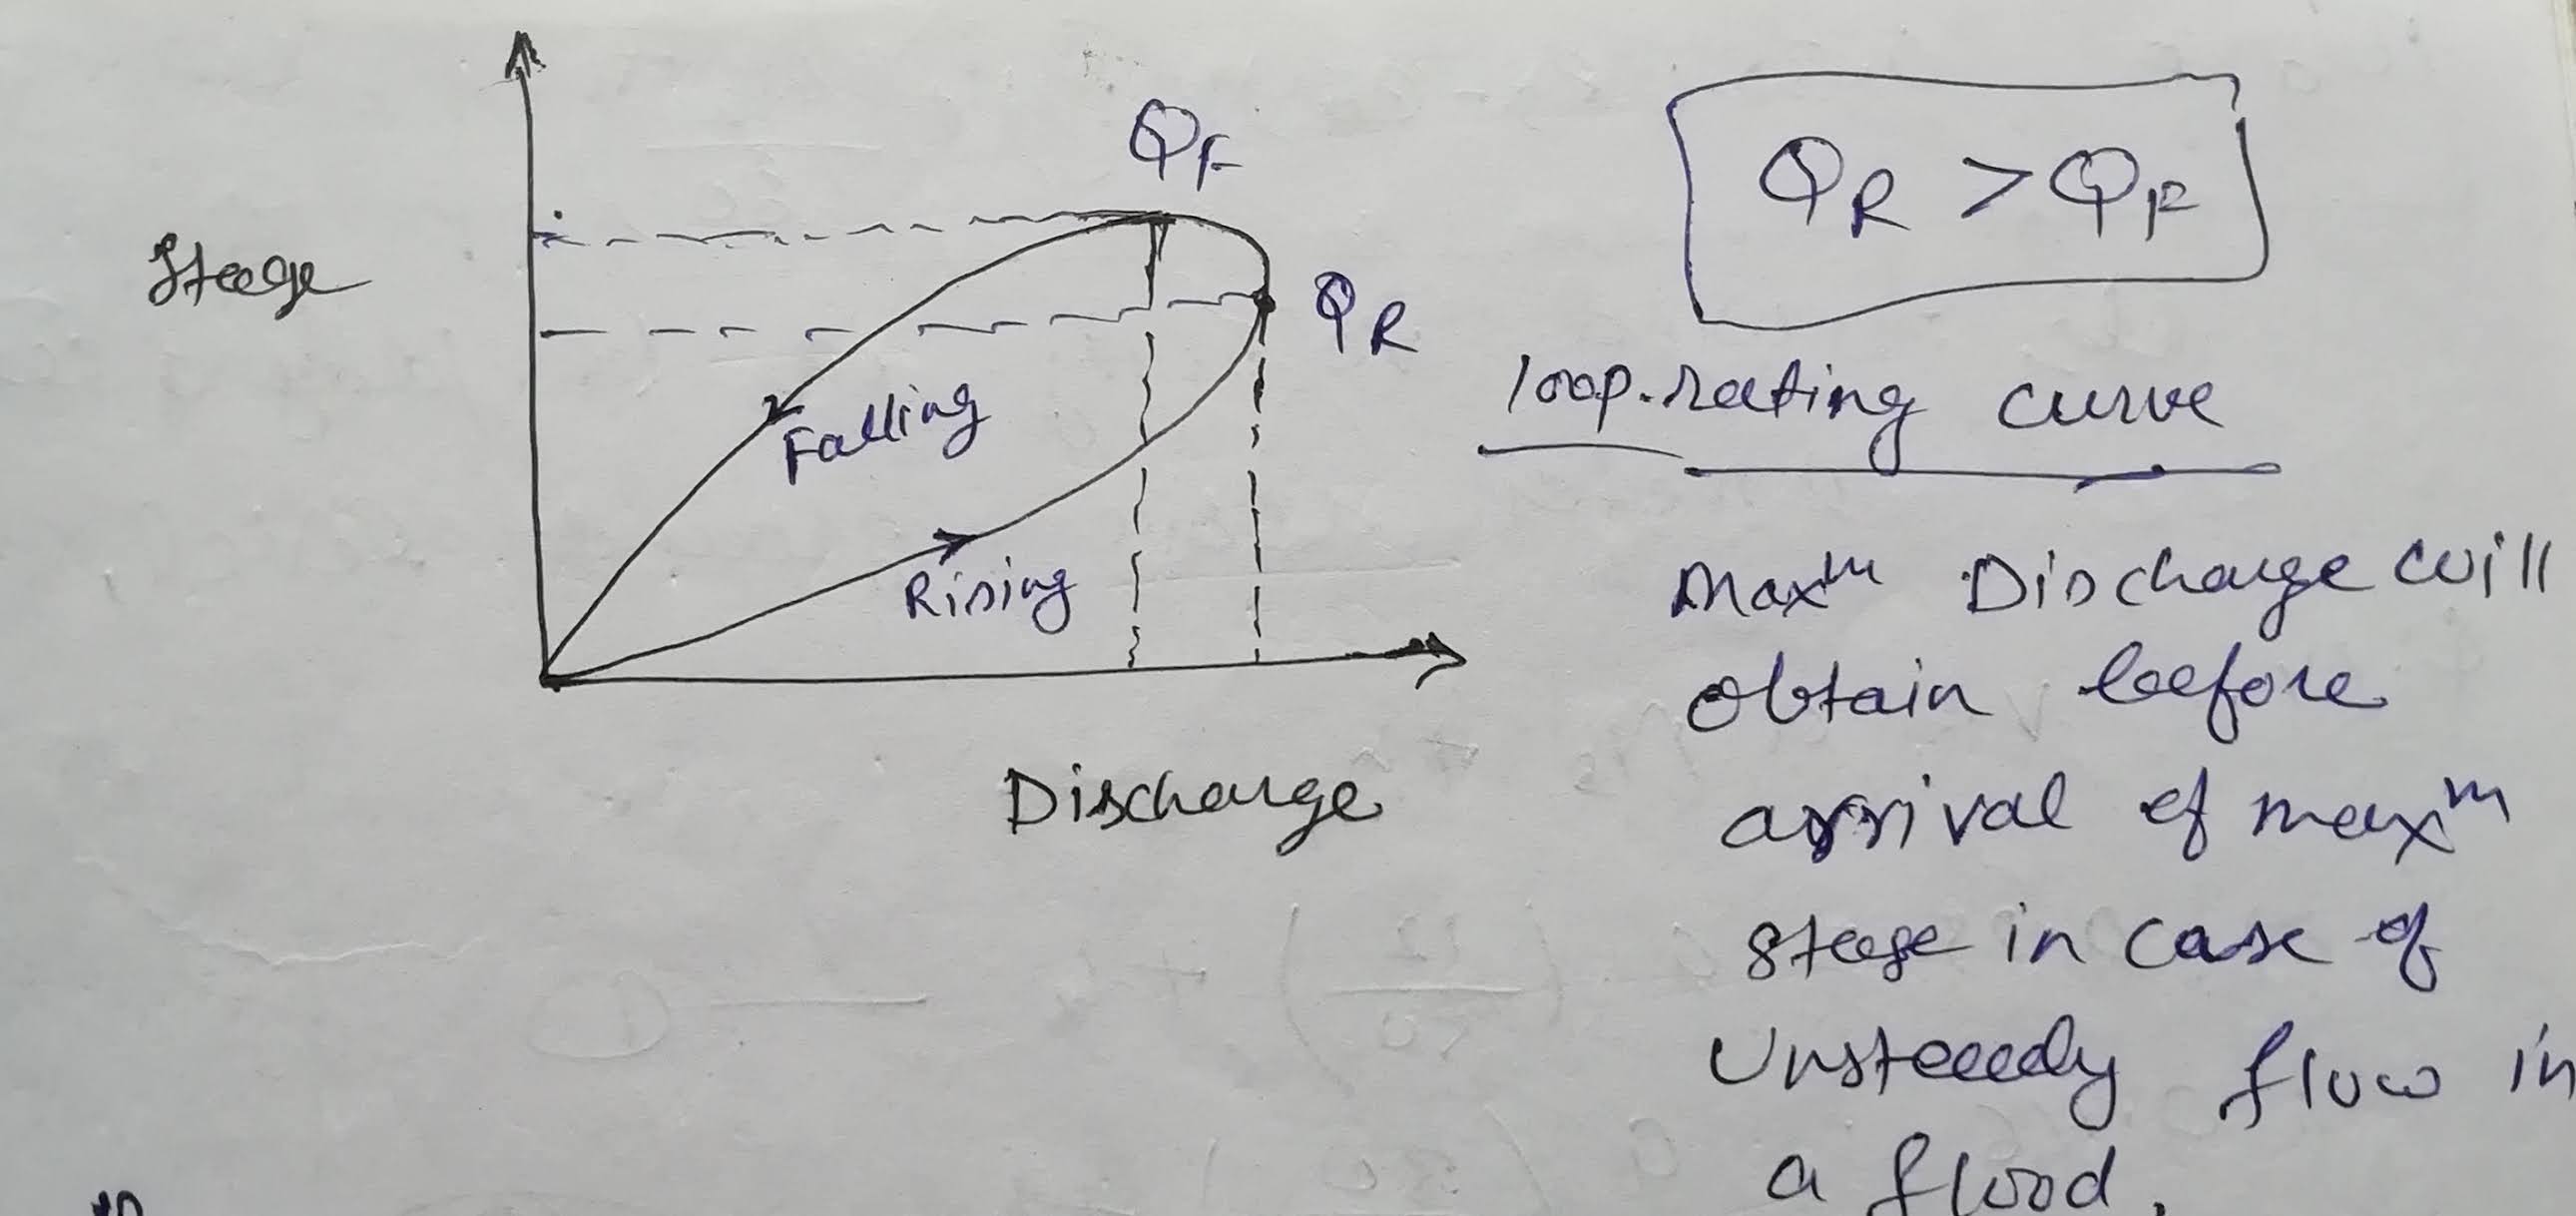 Q_F
Q_R > Q_F
Stage
Q_R
loop rating curve
Falling
Rising
Max^m Discharge will
obtain before
Discharge
arrival of max^m
stage in case of
Unsteady flow in
a flood.